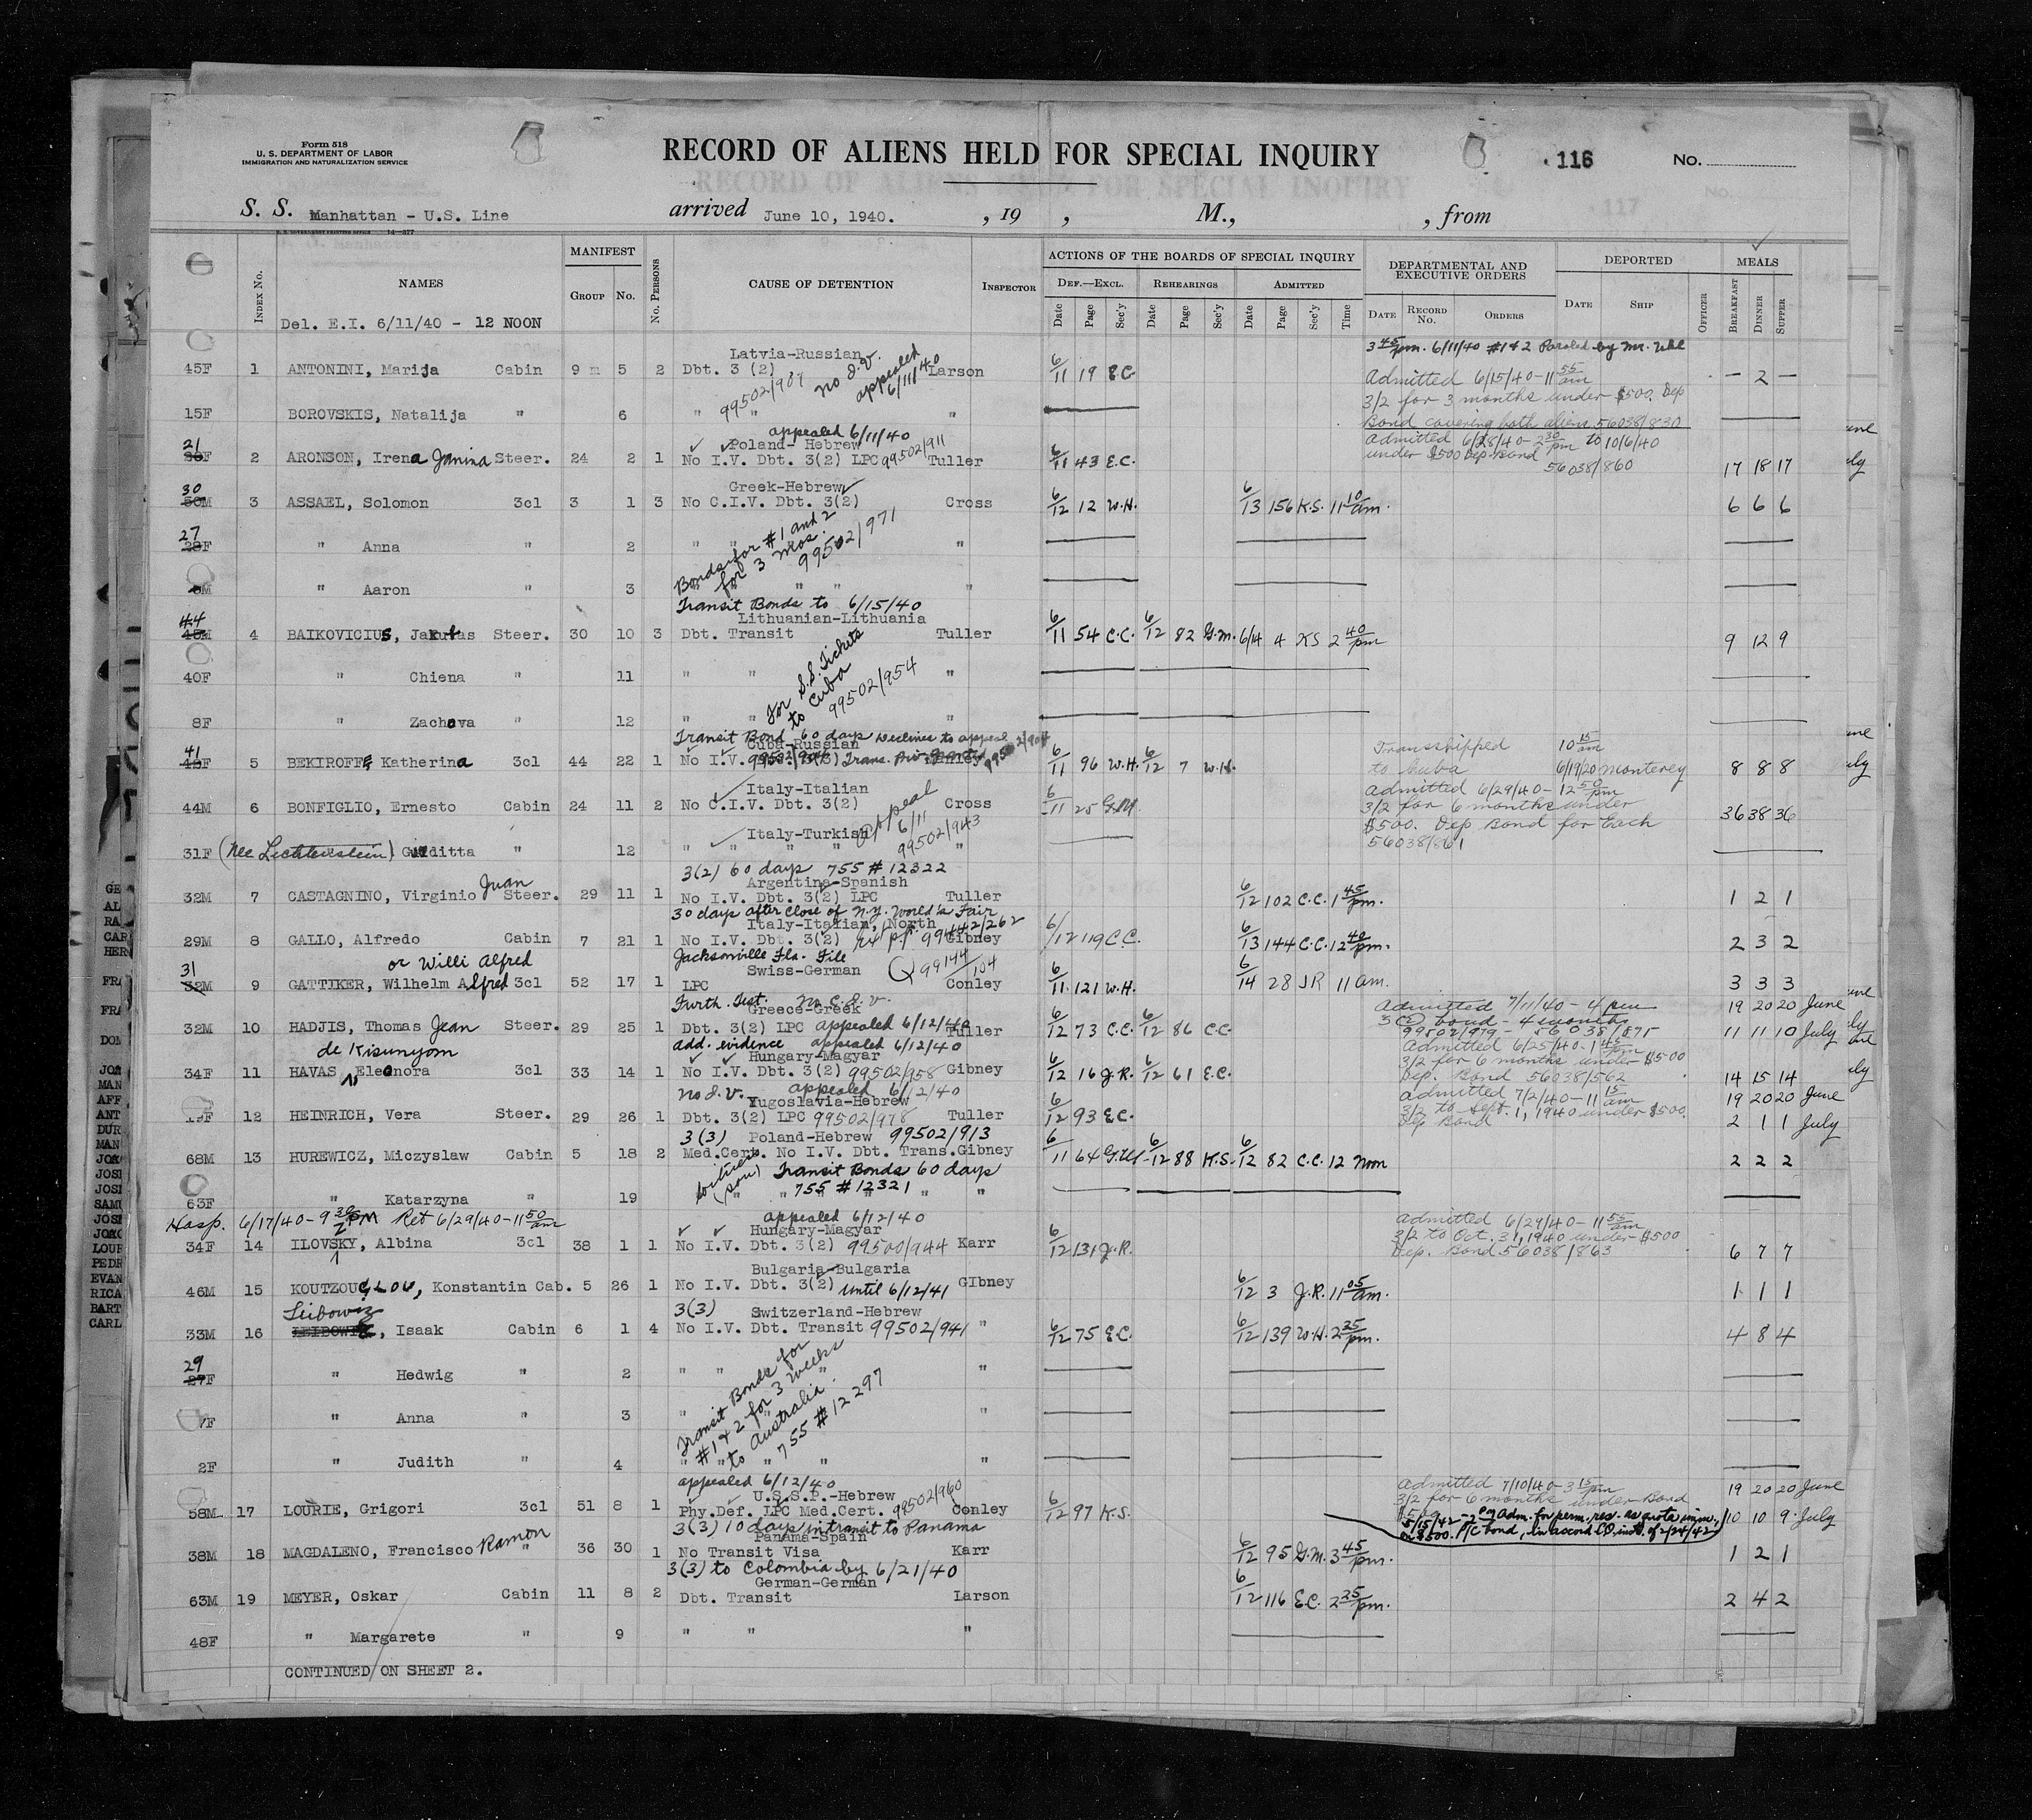 Form 518
U. S. DEPARTMENT OF LABOR
IMMIGRATION AND NATURALIZATION SERVICE
RECORD OF ALIENS HELD FOR SPECIAL INQUIRY
116
No.
S. S. Manhattan - U.S. Line arrived June 10, 1940. , 19 , M., , from
Index No. NAMES MANIFEST Group No. No. Persons CAUSE OF DETENTION Inspector ACTIONS OF THE BOARDS OF SPECIAL INQUIRY Def.—Excl. Rehearings Admitted DEPARTMENTAL AND EXECUTIVE ORDERS DEPORTED MEALS
Date Page Sec'y Date Page Sec'y Date Page Sec'y Time Date Record No. Orders Date Ship Officer Breakfast Dinner Supper
Del. E.I. 6/11/40 - 12 NOON
3 45 pm. 6/11/40 #1&2 Paroled by Mr. Uhl
Latvia-Russian no I.V. appealed 6/11/40
45F 1 ANTONINI, Marija Cabin 9 m 5 2 Dbt. 3 (2) 99502/909 Larson 6/11 19 E.C. Admitted 6/15/40-11 55 am — 2 —
3/2 for 3 months under $500. Dep
15F BOROVSKIS, Natalija " 6 " " "
Bond covering both aliens 56038/830
appealed 6/11/40
Poland- Hebrew 99502/911
21 36F 2 ARONSON, Irena Janina Steer. 24 2 1 No I.V. Dbt. 3(2) LPC Tuller 6/11 43 E.C. Admitted 6/28/40-2 30 pm to 10/6/40 under $500 Dep. Bond 56038/860 17 18 17
Greek-Hebrew
30 3 ASSAEL, Solomon 3cl 3 1 3 No C.I.V. Dbt. 3(2) Cross 6/12 12 W.H. 6/13 156 K.S. 11 10 am. 6 6 6
27 28F " Anna " 2 " " "
Bonds for #1 and 2 for 3 mos. 99502/971
" Aaron " 3 " " "
Transit Bonds to 6/15/40
Lithuanian-Lithuania
44 4 BAIKOVICIUS, Jakubas Steer. 30 10 3 Dbt. Transit Tuller 6/11 54 C.C. 6/12 82 G.M. 6/14 4 KS 2 40 pm 9 12 9
for S.S. Tickets to Cuba 99502/954
40F " Chiena " 11 " " "
8F " Zachava " 12 " " "
Transit Bond 60 days Declines to appeal
Cuba-Russian
41 5 BEKIROFF, Katherina 3cl 44 22 1 No I.V. 6/11 96 W.H. 6/12 7 W.H. Transshipped to Cuba 10 15 am 6/19/20 Monterey 8 8 8
Italy-Italian
44M 6 BONFIGLIO, Ernesto Cabin 24 11 2 No C.I.V. Dbt. 3(2) Cross 6/11 25 G.M. Admitted 6/29/40-12 50 pm 3/2 for 6 months under $500. Dep Bond for Each 56038/861 36 38 36
appeal 6/11 99502/943
Italy-Turkish
31F (nee Lichtenstein) Guiditta " 12 " " " " "
3(2) 60 days 755 # 12322
Argentina-Spanish
32M 7 CASTAGNINO, Virginio Juan Steer. 29 11 1 No I.V. Dbt. 3(2) LPC Tuller 6/12 102 C.C. 1 45 pm. 1 2 1
30 days after close of N.Y. World's Fair
Italy-Italian, North
29M 8 GALLO, Alfredo Cabin 7 21 1 No I.V. Dbt. 3(2) 99442/262 Gibney 6/12 119 C.C. 6/13 144 C.C. 12 40 pm. 2 3 2
or Willi Alfred
Jacksonville Fla. File
Swiss-German 99144/104
31 32M 9 GATTIKER, Wilhelm Alfred 3cl 52 17 1 LPC Conley 6/11 121 W.H. 6/14 28 JR 11 am. 3 3 3
Furth. Test. No C.I.V.
Greece-Greek
32M 10 HADJIS, Thomas Jean Steer. 29 25 1 Dbt. 3(2) LPC appealed 6/12/40 Tuller 6/12 73 C.C. 6/12 86 C.C. Admitted 7/11/40-4 pm bond - 4 months 99502/979 - 56038/875 19 20 20 June 11 11 10 July
de Kisunyom
add. evidence appealed 6/12/40
Hungary-Magyar
34F 11 HAVAS, Eleonora 3cl 33 14 1 No I.V. Dbt. 3(2) 99502/958 Gibney 6/12 16 J.R. 6/12 61 E.C. Admitted 6/25/40-1 45 pm 3/2 for 6 months under $500 Dep. Bond 56038/562 14 15 14
no I.V. appealed 6/12/40
Yugoslavia-Hebrew
12 HEINRICH, Vera Steer. 29 26 1 Dbt. 3(2) LPC 99502/978 Tuller 6/12 93 E.C. Admitted 7/2/40-11 15 am 3/2 to Sept. 1, 1940 under $500. Dep Bond 19 20 20 June 2 1 1 July
3(3) Poland-Hebrew 99502/913
68M 13 HUREWICZ, Miczyslaw Cabin 5 18 2 Med.Cert. No I.V. Dbt. Trans. Gibney 6/11 64 G.M. 6/12 88 K.S. 6/12 82 C.C. 12 Noon 2 2 2
witness (son) Transit Bonds 60 days 755 # 12321
63F " Katarzyna " 19 " " " " "
Hosp. 6/17/40-9 30 PM Ret 6/29/40-11 50 am
appealed 6/12/40
Hungary-Magyar
34F 14 ILOVSZKY, Albina 3cl 38 1 1 No I.V. Dbt. 3(2) 99500/944 Karr 6/12 131 J.R. Admitted 6/29/40-11 55 am 3/2 to Oct. 31, 1940 under $500 Dep. Bond 56038/863 6 7 7
Bulgaria-Bulgaria
46M 15 KOUTZOUGLOU, Konstantin Cab. 5 26 1 No I.V. Dbt. 3(2) until 6/12/41 GIbney 6/12 3 J.R. 11 05 am. 1 1 1
Leibowiz
3(3) Switzerland-Hebrew
33M 16 , Isaak Cabin 6 1 4 No I.V. Dbt. Transit 99502/941 " 6/12 75 E.C. 6/12 139 W.H. 2 35 pm. 4 8 4
29 27F " Hedwig " 2 " " " "
Transit Bonds for #1 & 2 for 3 weeks to Australia. 755 # 12297
7F " Anna " 3 " " "
2F " Judith " 4 " " " " "
appealed 6/12/40
U.S.S.R.-Hebrew 99502/960
58M 17 LOURIE, Grigori 3cl 51 8 1 Phy.Def. LPC Med.Cert. Conley 6/12 97 K.S. Admitted 7/10/40-3 15 pm 3/2 for 6 months under Bond $500 19 20 20 June 10 10 9 July
5/15/42 - adm. for perm. res. as quota imm., on $500. P/C bond, in accord CO inst. of 2/24/42
3(3) 10 days in transit to Panama
Panama-Spain
38M 18 MAGDALENO, Francisco Ramon " 36 30 1 No Transit Visa Karr 6/12 95 G.M. 3 45 pm. 1 2 1
3(3) to Colombia by 6/21/40
German-German
63M 19 MEYER, Oskar Cabin 11 8 2 Dbt. Transit Larson 6/12 116 E.C. 2 25 pm. 2 4 2
48F " Margarete " 9 " " "
CONTINUED ON SHEET 2.